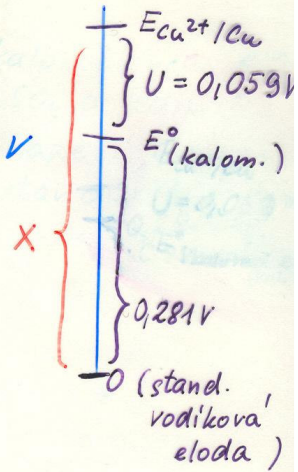 E Cu²⁺/Cu
U = 0,059V
V
E° (kalom.)
X
0,281V
0 (stand.
vodíková
eloda)